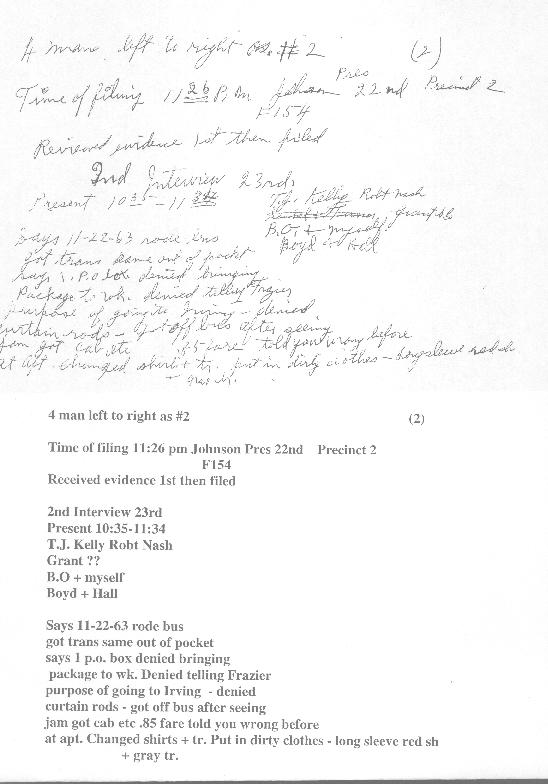 4 man left to right as #2 (2)
Pres
Time of filing 11 26 P.m. Johnson 22nd Precinct 2
F154
Reviewed evidence 1st then filed
2nd Interview 23rd
Present 10 35 - 11 34
T.J. Kelly Robt Nash
grant
B.O. + myself
Boyd + Hall
Says 11-22-63 rode bus
got trans same out of pocket
says 1 P.O box denied bringing
Package to wk. denied telling Frazier
purpose of going to Irving - denied
curtain rods - got off bus after seeing
jam got cab etc .85 fare told you wrong before
at apt. changed shirt + tr. put in dirty clothes - long sleeve red sh
+ gray tr.
4 man left to right as #2 (2)
Time of filing 11:26 pm Johnson Pres 22nd Precinct 2
F154
Received evidence 1st then filed
2nd Interview 23rd
Present 10:35-11:34
T.J. Kelly Robt Nash
Grant ??
B.O + myself
Boyd + Hall
Says 11-22-63 rode bus
got trans same out of pocket
says 1 p.o. box denied bringing
package to wk. Denied telling Frazier
purpose of going to Irving - denied
curtain rods - got off bus after seeing
jam got cab etc .85 fare told you wrong before
at apt. Changed shirts + tr. Put in dirty clothes - long sleeve red sh
+ gray tr.